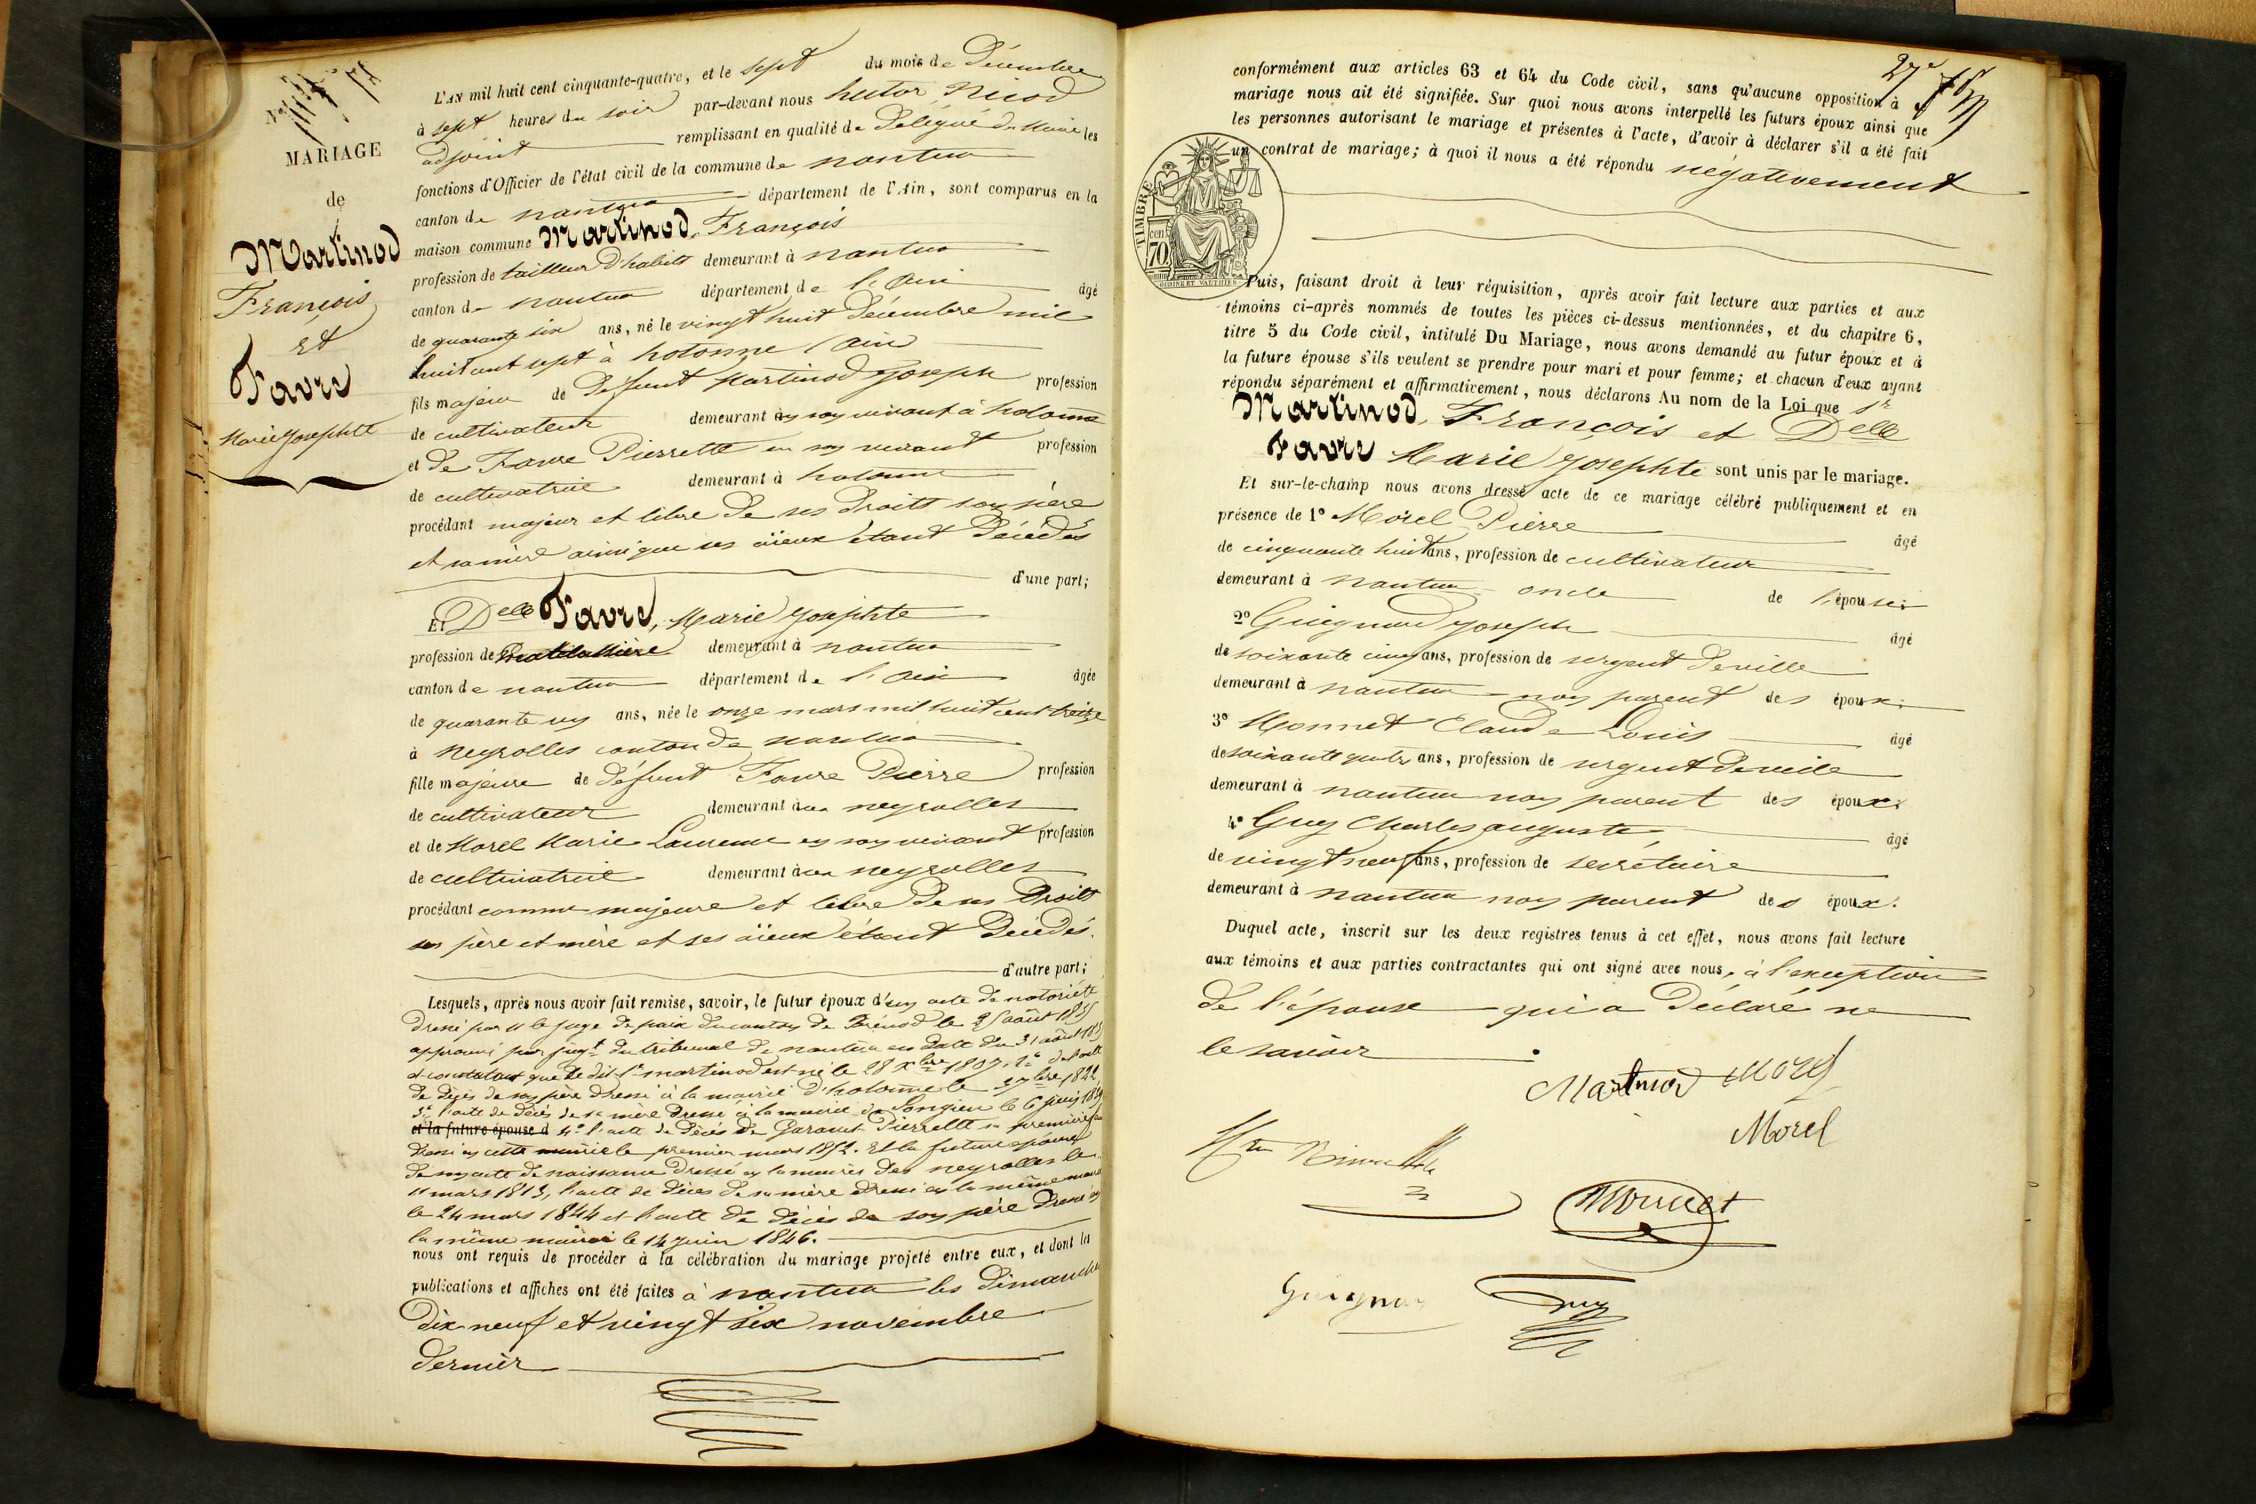 MARIAGE
de
Martinod
François
et
Favre
Marie Josephte
L'AN mil huit cent cinquante-quatre, et le sept du mois de Décembre
à sept heures du soir par-devant nous hector Nicod
adjoint remplissant en qualité de Délégué du Maire les
fonctions d'Officier de l'état civil de la commune de nantua
canton de nantua département de l'Ain, sont comparus en la
maison commune Martinod, François
profession de tailleur d'habits demeurant à nantua
canton de nantua département de l'ain âgé
de quarante six ans, né le vingt huit décembre mil
huit cent sept à hotonne (ain
fils majeur de Défunt Martinod Joseph profession
de cultivateur demeurant en son vivant à hotonne
et de Favre Pierrette en son vivant profession
de cultivatrice demeurant à hotonne
procédant majeur et libre de ses droits son père
et sa mère ainsi que ses aïeux étant décédés
d'une part;
Et Delle Favre, Marie Josephte
profession de matelassière demeurant à nantua
canton de nantua département de l'ain âgée
de quarante un ans, née le onze mars mil huit cent treize
à neyrolles canton de nantua
fille majeure de défunt Favre Pierre profession
de cultivateur demeurant à neyrolles
et de Morel Marie Laurence en son vivant profession
de cultivatrice demeurant à neyrolles
procédant comme majeure et libre de ses Droits
ses père et mère et ses aïeux étant décédés.
d'autre part;
Lesquels, après nous avoir fait remise, savoir, le futur époux d'un acte de notoriété
dressé par M le juge de paix du canton de Brénod le 25 août
approuvé par jugt du tribunal de nantua en date du 31 août
et constatant que le dit Sr martinod est né le 28 Xbre 1807, 2° de l'acte
de décès de son père dressé à la mairie d'hotonne le 1822,
3° l'acte de décès de sa mère dressé à la mairie de Songieu le 6 juin
et la future épouse d 4° l'acte de décès de Pierrette sa première
dressé en cette mairie le premier mars 1852. Et la future épouse
de son acte de naissance dressé en la mairie des neyrolles le
11 mars 1813, l'acte de décès de sa mère dressé en la même mairie
le 24 mars 1844 et l'acte de décès de son père dressé en
la même mairie le 14 juin 1846.
nous ont requis de procéder à la célébration du mariage projeté entre eux, et dont les
publications et affiches ont été faites à nantua les dimanches
dix-neuf et vingt six novembre
dernier
27e
conformément aux articles 63 et 64 du Code civil, sans qu'aucune opposition à ce
mariage nous ait été signifiée. Sur quoi nous avons interpellé les futurs époux ainsi que
les personnes autorisant le mariage et présentes à l'acte, d'avoir à déclarer s'il a été fait
un contrat de mariage; à quoi il nous a été répondu négativement
TIMBRE
cen 70
Puis, faisant droit à leur réquisition, après avoir fait lecture aux parties et aux
témoins ci-après nommés de toutes les pièces ci-dessus mentionnées, et du chapitre 6,
titre 5 du Code civil, intitulé Du Mariage, nous avons demandé au futur époux et à
la future épouse s'ils veulent se prendre pour mari et pour femme; et chacun d'eux ayant
répondu séparément et affirmativement, nous déclarons Au nom de la Loi que Sr
Martinod, François et Delle
Favre Marie Josephte sont unis par le mariage.
Et sur-le-champ nous avons dressé acte de ce mariage célébré publiquement et en
présence de 1° Morel Pierre âgé
de cinquante huit ans, profession de cultivateur
demeurant à nantua oncle de l'épouse;
2° Guignard Joseph âgé
de soixante cinq ans, profession de sergent de ville
demeurant à nantua non parent des époux;
3° Monnet Claude Louis âgé
de soixante quatre ans, profession de sergent de ville
demeurant à nantua non parent des époux;
4° Guy Charles auguste, âgé
de vingt neuf ans, profession de secrétaire
demeurant à nantua non parent des époux.
Duquel acte, inscrit sur les deux registres tenus à cet effet, nous avons fait lecture
aux témoins et aux parties contractantes qui ont signé avec nous, à l'exception
de l'épouse qui a déclaré ne
le savoir
Martinod
Morel
Guy